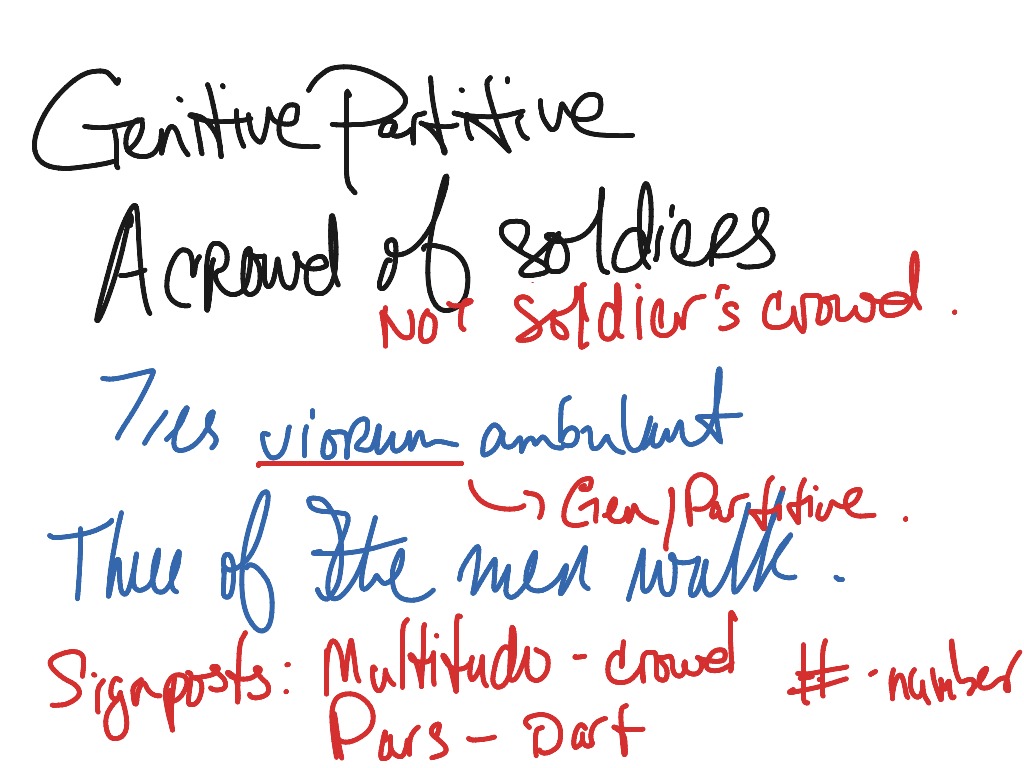 Genitive Partitive
A crowd of soldiers
NOT soldier's crowd.
Tres virorum ambulant
Gen/Partitive.
Three of the men walk.
Signposts: Multitudo - crowd # - number
Pars - Part